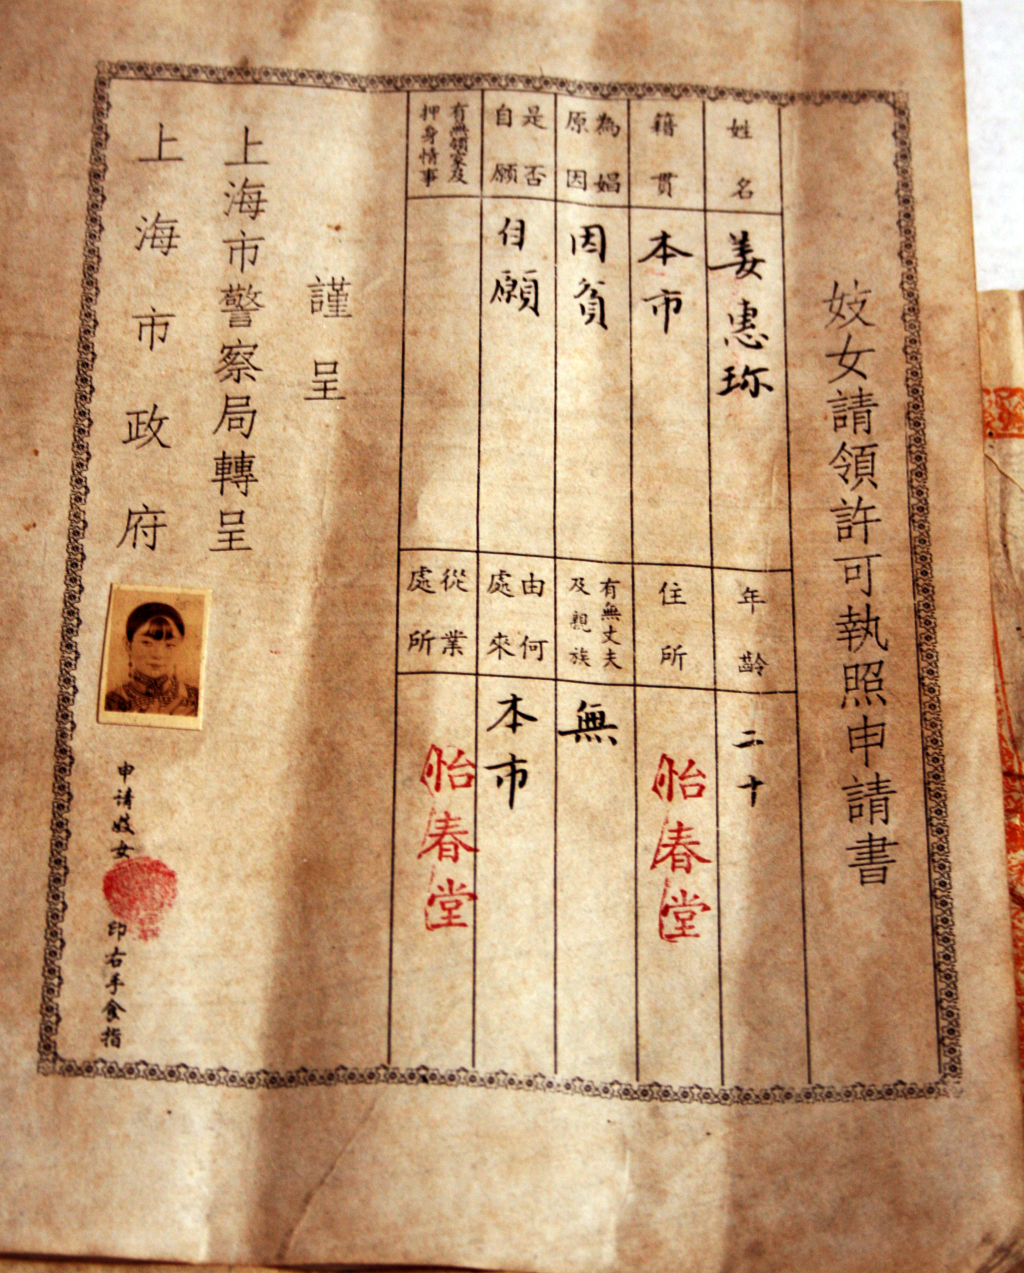 妓女請領許可執照申請書
姓名
姜惠珍
年齡
二十
籍貫
本市
住所
怡春堂
為娼原因
因貧
有無丈夫及親族
無
是否自願
自願
由何處來
本市
有無領家及押身情事
從業處所
怡春堂
謹呈
上海市警察局轉呈
上海市政府
申請妓女
印右手食指